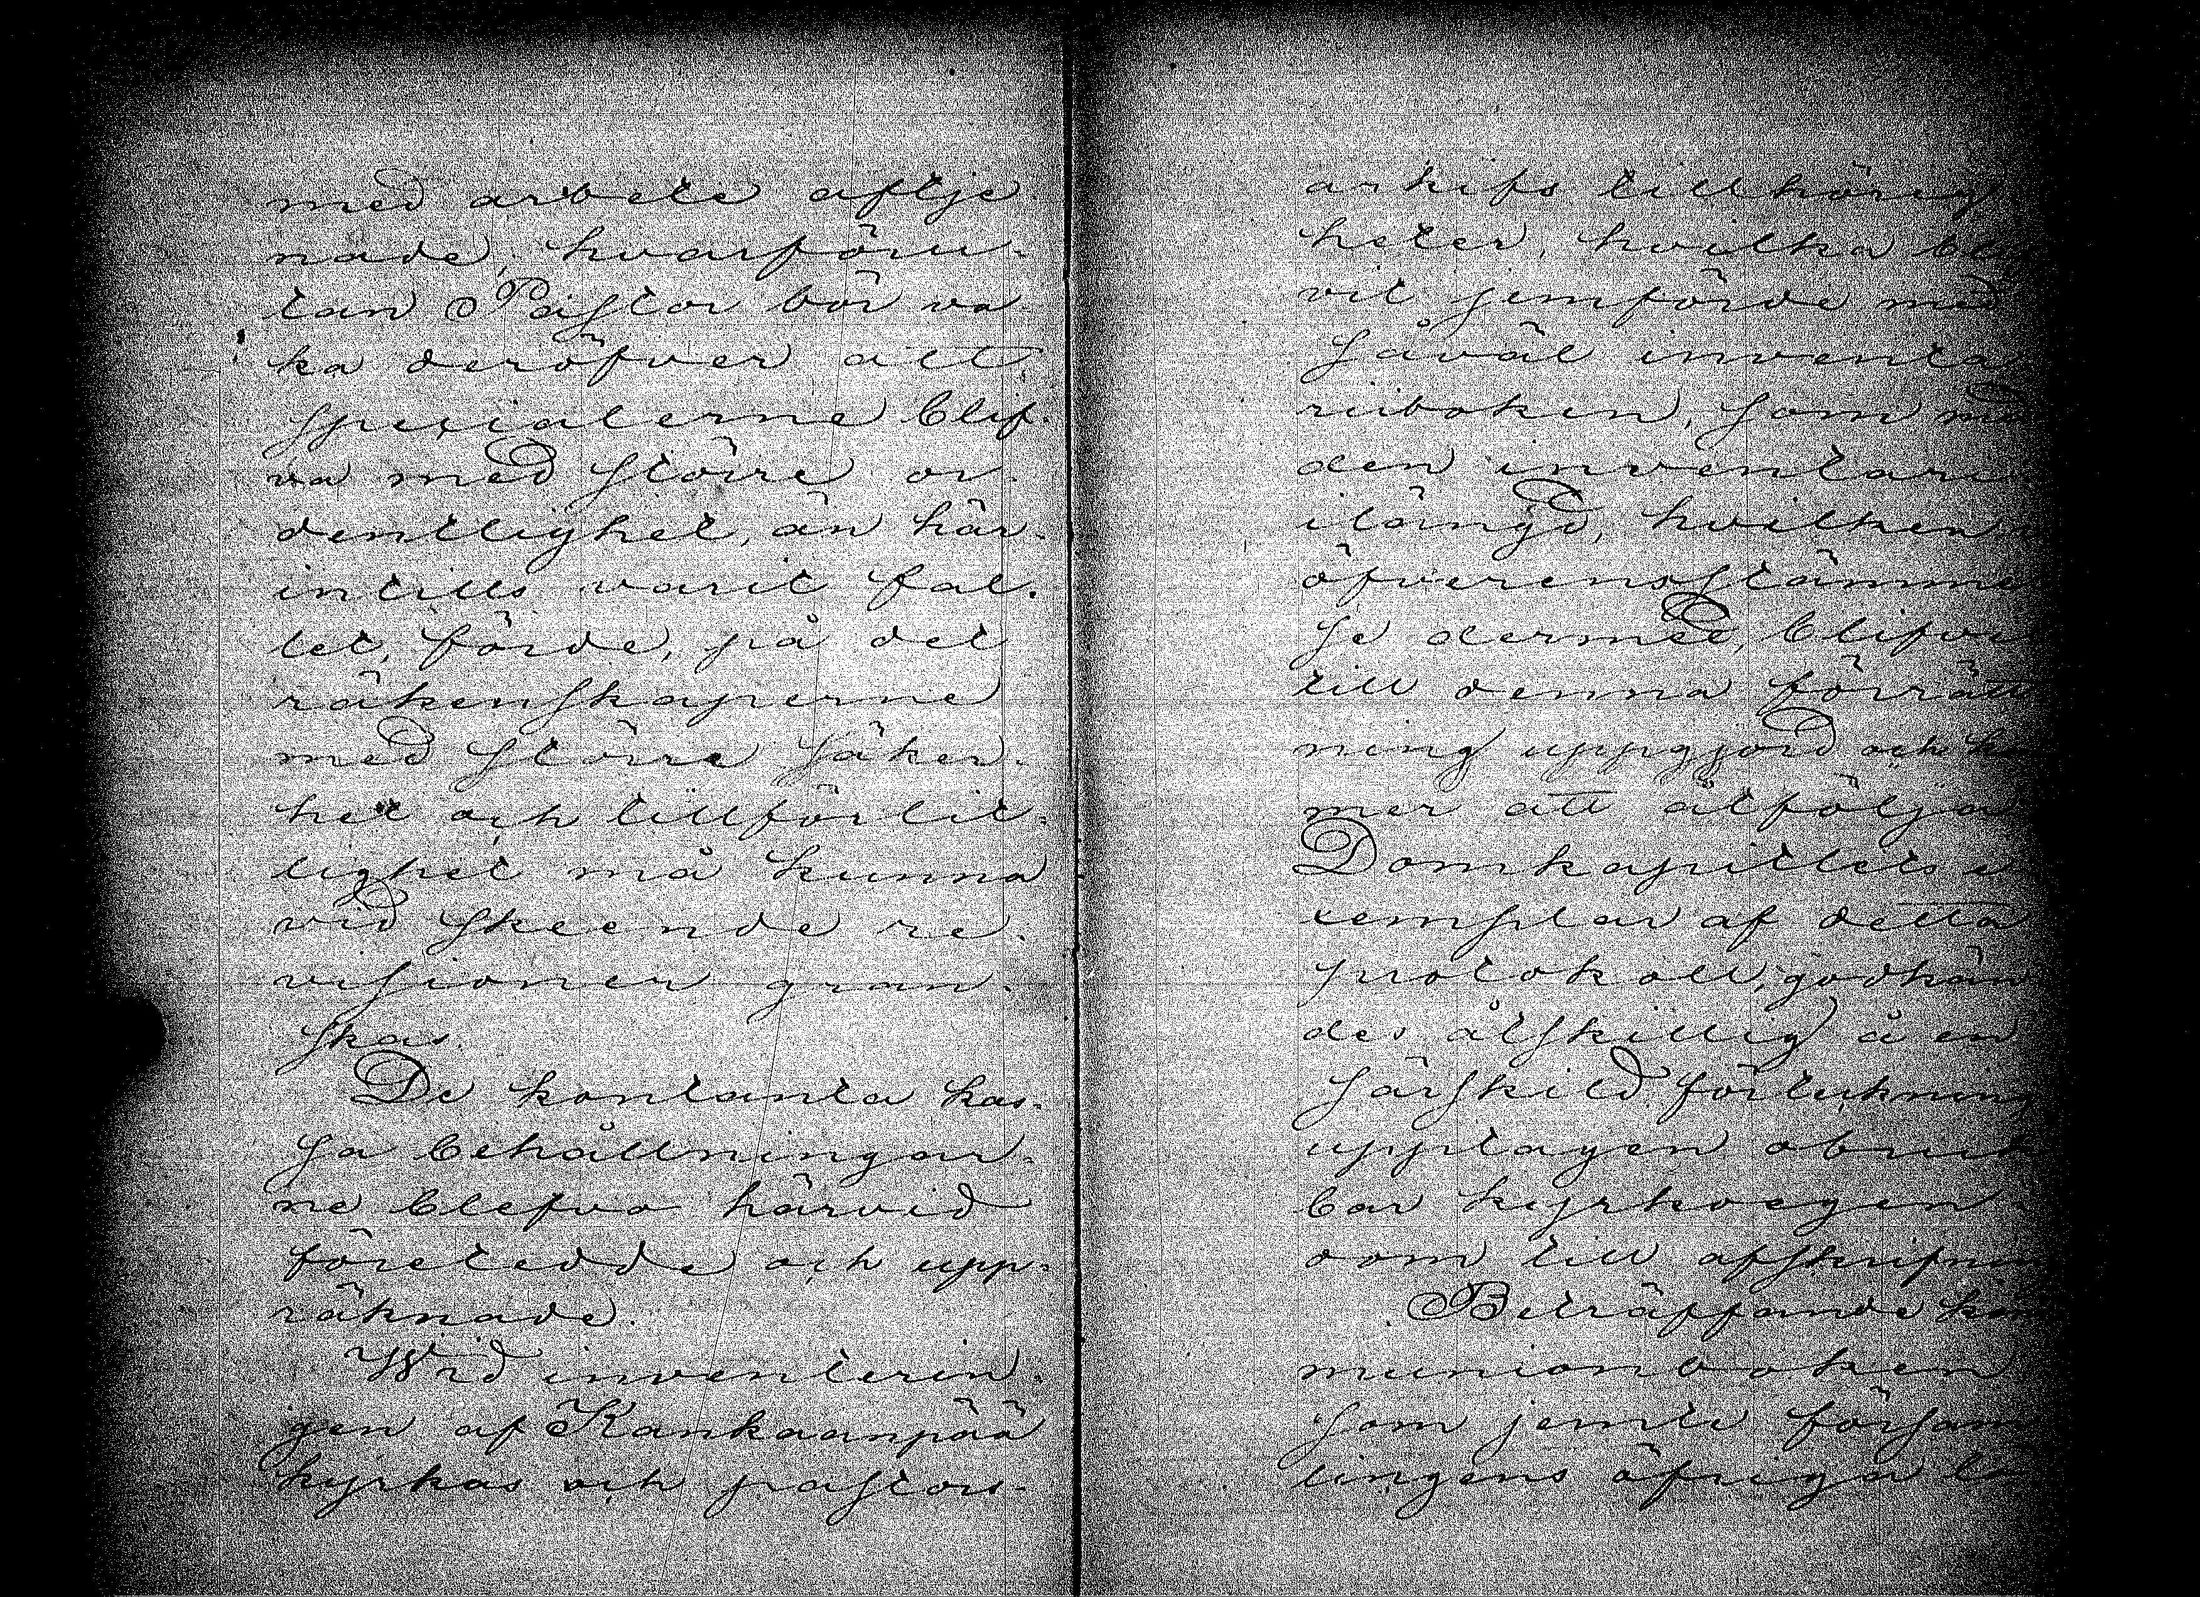 med arbete aftje
nade, hvarföru-
tan Pastor bör va
ka deröfver att
specialerne blif-
va med större or-
dentlighet, än här-
intills varit fal-
let, förde, på det
räkenskaperne
med större säker-
het och tillförlit-
lighet må kunna
vid skeende re-
visioner gran-
skas.
De kontanta kas-
sa behållningar-
ne blefvo härvid
företeddde och upp-
räknade.
Wid inventerin-
gen af Kankaanpää
kyrkas och pastors-
arkifs tillhörig
heter, hvilka bli
vit jemförde med
såväl inventa
rieboken, som med
den inventari
ilängd, hvilken
öfverensstämme
se dermed, blifvit
till denna förrätt
ning uppgjord och k
mer att åtföljа
Domkapitlets e
xemplar af detta
protokoll, godkän
des åtskillig å en
särskild förteckning
upptagen obruk
bar kyrkoegen
dom till afskrifni
Beträffande kom
munionboken
som jemte försam
lingens öfriga